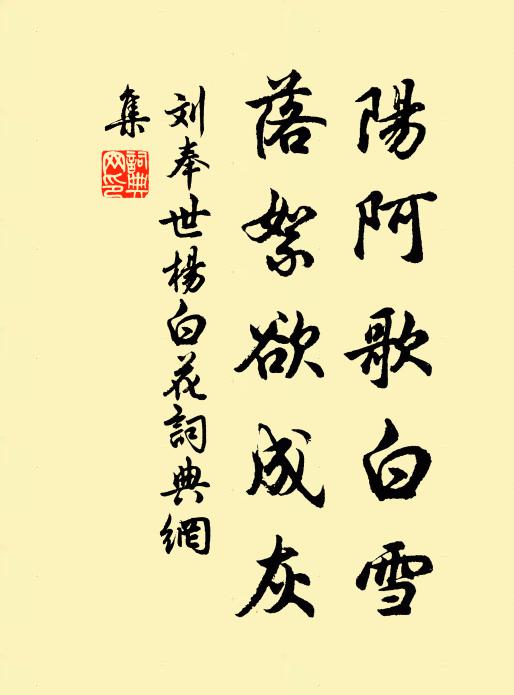 陽阿歌白雪
落絮欲成灰
刘奉世楊白花詞典網
集
詞典网印